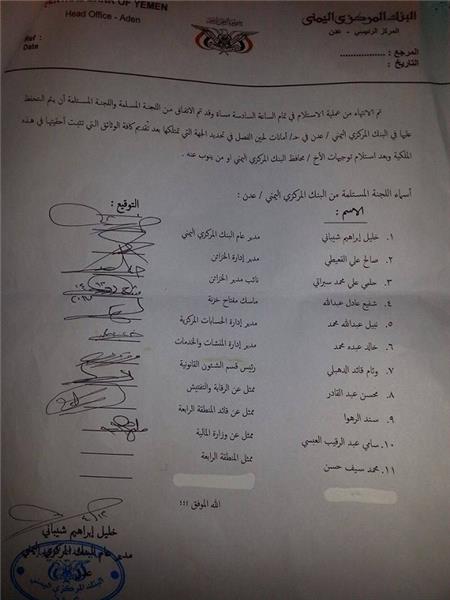 CENTRAL BANK OF YEMEN
Head Office - Aden
البنك المركزي اليمني
المركز الرئيسي - عدن
Ref :
المرجع :
Date :
التاريخ :
تم الانتهاء من عملية الاستلام في تمام الساعة السادسة مساء وقد تم الاتفاق بين اللجنة المسلمة واللجنة المستلمة أن يتم التحفظ
عليها في البنك المركزي اليمني / عدن في حـ/ أمانات لحين الفصل في تحديد الجهة التي تمتلكها بعد تقديم كافة الوثائق التي تثبت أحقيتها في هذه
الملكية وبعد استلام توجيهات الأخ / محافظ البنك المركزي اليمني او من ينوب عنه .
أسماء اللجنة المستلمة من البنك المركزي اليمني / عدن :
الاسم : التوقيع :
١. خليل إبراهيم شيباني مدير عام البنك المركزي اليمني
٢. صالح علي القعيطي مدير إدارة الخزائن
٣. حلمي علي محمد نائب مدير الخزائن
٤. شفيع عادل عبدالله ماسك مفتاح خزنة
٥. نبيل عبدالله محمد مدير إدارة الحسابات المركزية
٦. خالد عبده محمد مدير إدارة المنشات والخدمات
٧. وئام قائد الدهبلي رئيس قسم الشئون القانونية
٨. محسن عبد القادر ممثل عن الرقابة والتفتيش
٩. سند الرهوا ممثل عن قائد المنطقة الرابعة
١٠. سامي عبد الرقيب العنسي ممثل عن وزارة المالية
١١. محمد سيف حسن ممثل المنطقة الرابعة
الله الموفق !!!
خليل إبراهيم شيباني
مدير عام البنك المركزي اليمني
عدن
البنك المركزي اليمني